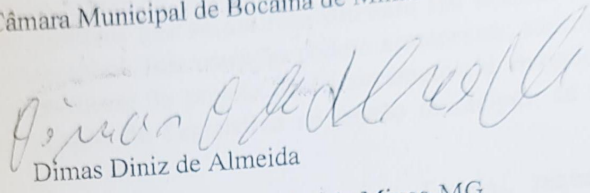 Câmara Municipal de Bocaina de
Dimas Diniz de Almeida
Minas MG